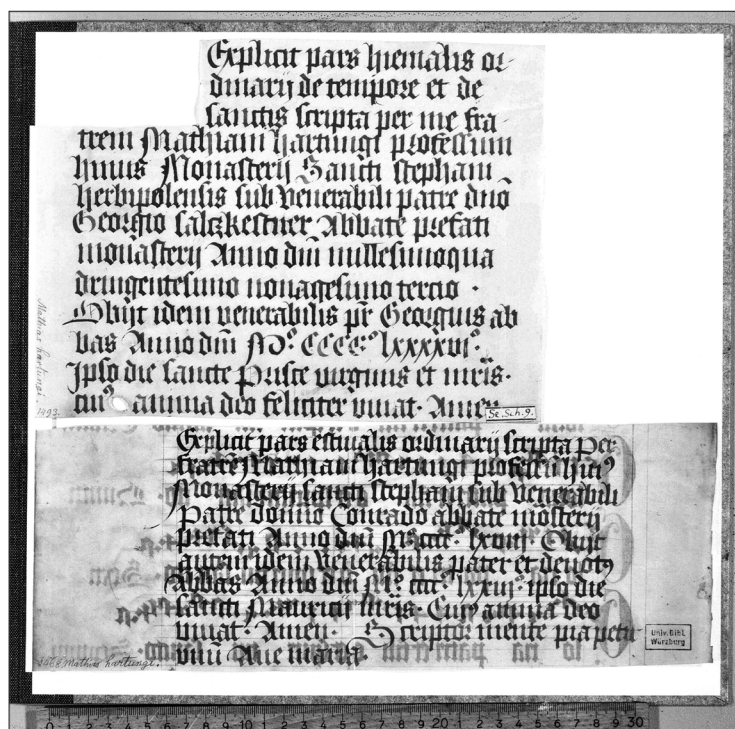 Explicit pars hiemalis or⸗
dinarij de tempore et de
sanctis scripta per me fra
trem Mathiam hartungi professum
huius Monasterij Sancti stephani
herbipolensis sub Venerabili patre dnō
Georgio saltzkestner Abbate prefati
monasterij Anno dm̄ millesimoqua
dringentesimo nonagesimo tercio ·
Obijt idem venerabilis pr̄ Georgius ab
bas Anno dm̄ Mº CCCCº lxxxxvi º·
Ipso die sancte Prisce virginis et mr̄is·
cuiꝰ anima deo feliciter vivat· Amen
Mathias hartungi.
1493
Se.Sch.9.
Explicit pars estiualis ordinarij scripta per
fratrē Mathiam hartungi professū huiꝰ
Monasterij sancti stephani sub Venerabili
Patre domno Conrado abbate mōsterij
prefati Anno dm̄ Mº cccc· lxviii º· Obijt
autem idem Venerabilis pater et deuotꝰ
Abbas Anno dm̄ Mº cccc· lxxvi º· ipso die
sancti Mauricij mr̄is· Cuiꝰ anima deo
viuat· Amen· Scriptor mente pia petit
vnū Aue maria·
1468 Mathias hartungi.
Univ. Bibl.
Würzburg
0 1 2 3 4 5 6 7 8 9 10 1 2 3 4 5 6 7 8 9 20 1 2 3 4 5 6 7 8 9 30